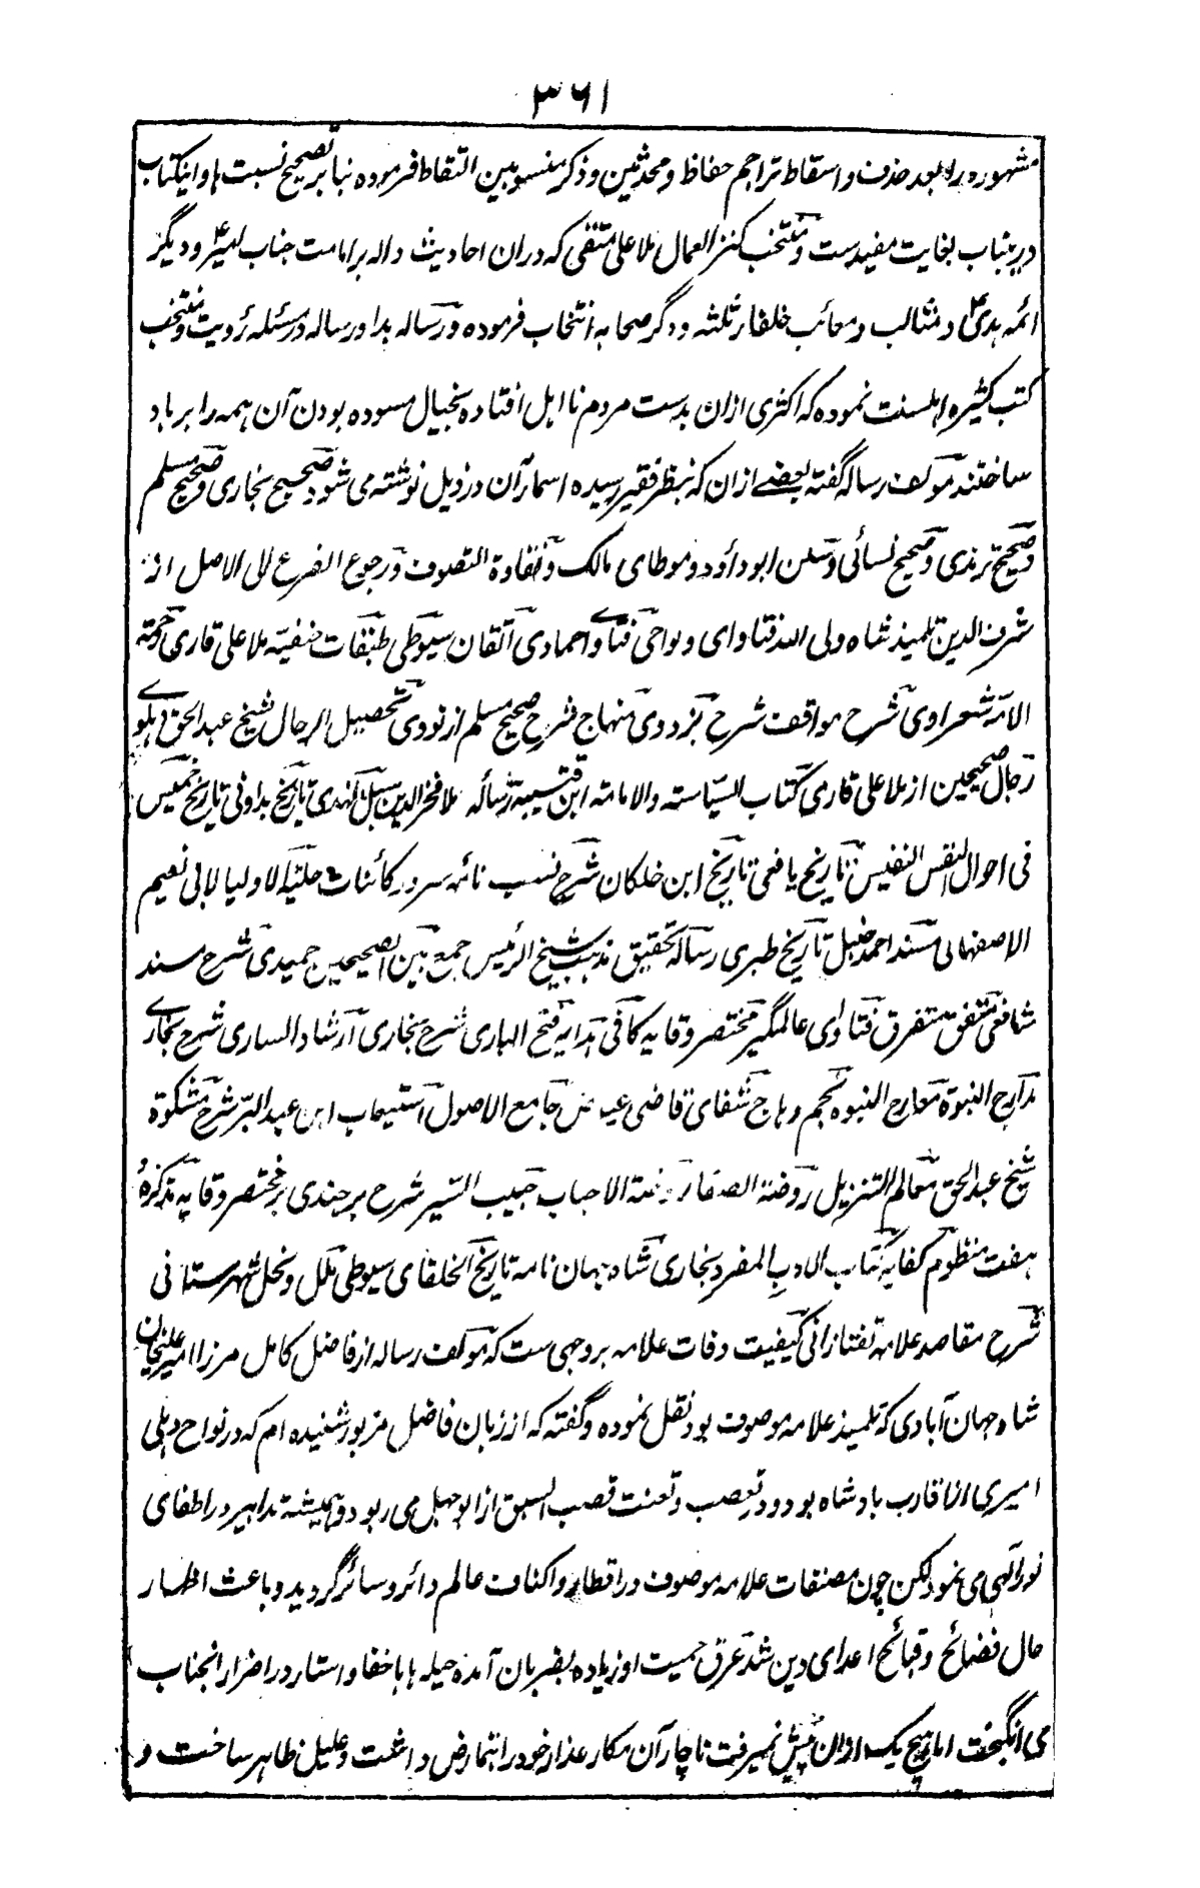 ۳۶۱
مشهوره را بعد حذف و اسقاط تراجم حفاظ و محدثین و ذکر منسوبین التقاط فرموده بنا بر تصحیح نسبت ها و اینکتاب
درینباب بغایت مفیدست و منتخب کنز العمال ملا علی متقی که دران احادیث داله بر امامت جناب امیرؑ و دیگر
ائمه هدیؑ و مثالب و معائب خلفاء ثلثه و دگر صحابه انتخاب فرموده و رساله بدا و رساله در مسئله رویت و منتخب
کتب کثیره اهلسنت نموده که اکثری ازان بدست مردم نا اهل افتاده بخیال مسوده بودن آن همه را برباد
ساختند مولف رساله گفته بعضے ازان که بنظر فقیر رسیده اسماء آن در ذیل نوشته می شود صحیح بخاری و صحیح مسلم
و صحیح ترمذی و صحیح نسائی و سنن ابو داود و موطای مالک و نقاوة التصوف و رجوع الفرع الی الاصل از
شرف الدین تلمیذ شاه ولی الله فتاوای و لواحی فتاوے حمادی اتقان سیوطی طبقات حنفیه ملا علی قاری رحمة
الامه شعراوی شرح مواقف شرح بزدوی منهاج شرح صحیح مسلم از نووی تحصیل الرجال شیخ عبد الحق دهلوے
رجال صحیحین از ملا علی قاری کتاب السیاسته والامامته ابن قتیبه رساله ملا فخر الدین تاریخ بداونی تاریخ خمیس
فی احوال النفس النفیس تاریخ یافعی تاریخ ابن خلکان شرح نسب نامه سرور کائنات حلیة الاولیا لابی نعیم
الاصفهانی مسند احمد حنبل تاریخ طبری رساله تحقیق مذهب شیخ الرئیس جمع بین الصحیحین حمیدی شرح مسند
شافعی متفق متفرق فتاوای عالمگیر مختصر وقایه کافی هدایه فتح الباری شرح بخاری ارشاد الساری شرح بخاری
مدارج النبوة معارج النبوه نجم وهاج شفای قاضی عیاض جامع الاصول استیعاب ابن عبد البر شرح مشکوة
شیخ عبد الحق معالم التنزیل روضة الصفا روضة الاحباب حبیب السیر شرح برجندی بر مختصر وقایه تذکرهٔ
هفت منظوم کفایه کتاب الادب المفرد بخاری شاه جهان نامه تاریخ الخلفای سیوطی ملل و نحل شهرستانی
شرح مقاصد علامه تفتازانی کیفیت وفات علامه بر وجهی ست که مولف رساله از فاضل کامل مرزا امیر علیخان
شاه جهان آبادی که تلمیذ علامه موصوف بود نقل نموده و گفته که از زبان فاضل مزبور شنیده ام که در نواح دهلی
امیری از اقارب بادشاه بود و در تعصب و تعنت قصب السبق از ابوجهل می ربود و همیشه تدابیر در اطفای
نور الهی می نمود لکن چون مصنفات علامه موصوف در اقطار و اکناف عالم دائر و سائر گردید و باعث اظهار
حال فضائح و قبائح اعدای دین شد عرق حمیت او زیاده بضربان آمده حیله ها باخفا و استار در اضرار انجناب
می انگیخت اما هیچ یک ازان پیش نمیرفت ناچار آن مکار عذار خود را بتمارض داشت و علیل ظاهر ساخت و